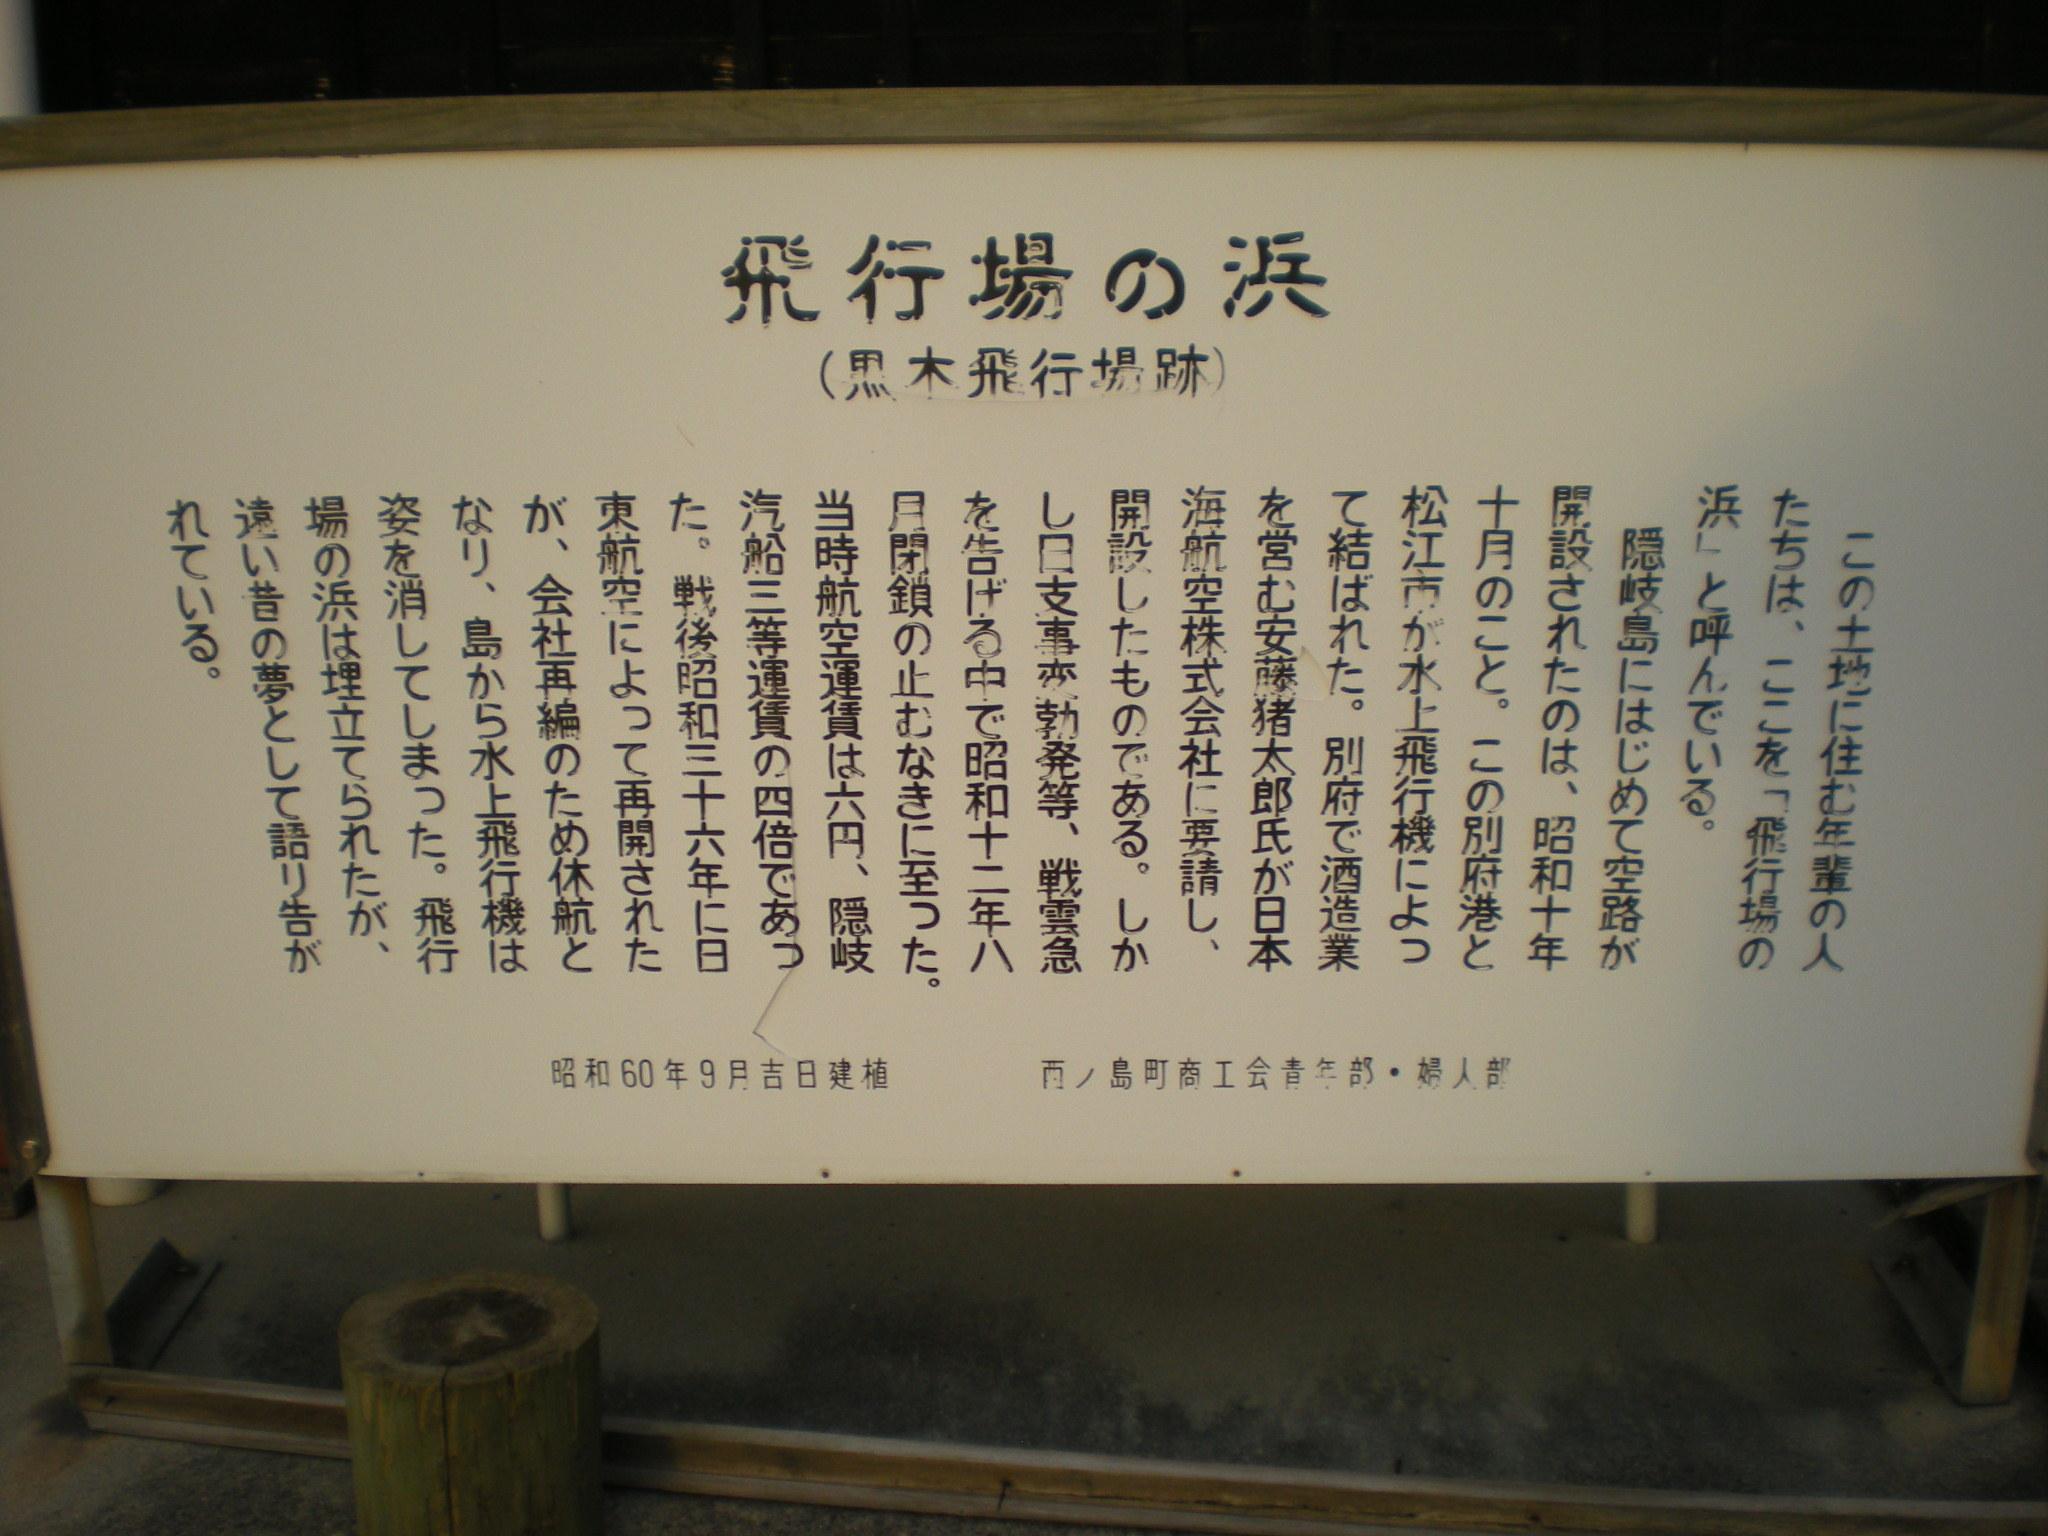 飛行場の浜
(黒木飛行場跡)
この土地に住む年輩の人
たちは、ここを「飛行場の
浜」と呼んでいる。
隠岐島にはじめて空路が
開設されたのは、昭和十年
十月のこと。この別府港と
松江市が水上飛行機によっ
て結ばれた。別府で酒造業
を営む安藤猪太郎氏が日本
海航空株式会社に要請し、
開設したものである。しか
し日支事変勃発等、戦雲急
を告げる中で昭和十二年八
月閉鎖の止むなきに至った。
当時航空運賃は六円、隠岐
汽船三等運賃の四倍であっ
た。戦後昭和三十六年に日
東航空によって再開された
が、会社再編のため休航と
なり、島から水上飛行機は
姿を消してしまった。飛行
場の浜は埋立てられたが、
遠い昔の夢として語り告が
れている。
昭和60年9月吉日建植 西ノ島町商工会青年部・婦人部